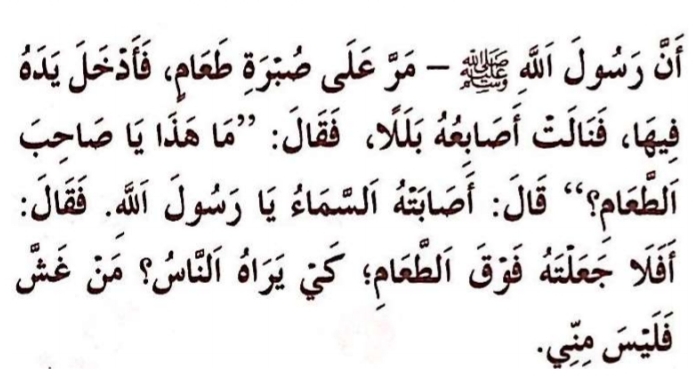 أَنَّ رَسُولَ اَللَّهِ ﷺ – مَرَّ عَلَى صُبْرَةِ طَعَامٍ، فَأَدْخَلَ يَدَهُ
فِيهَا، فَنَالَتْ أَصَابِعُهُ بَلَلًا، فَقَالَ: ”مَا هَذَا يَا صَاحِبَ
اَلطَّعَامِ؟“ قَالَ: أَصَابَتْهُ اَلسَّمَاءُ يَا رَسُولَ اَللَّهِ. فَقَالَ:
أَفَلَا جَعَلْتَهُ فَوْقَ اَلطَّعَامِ؛ كَيْ يَرَاهُ اَلنَّاسُ؟ مَنْ غَشَّ
فَلَيْسَ مِنِّي.